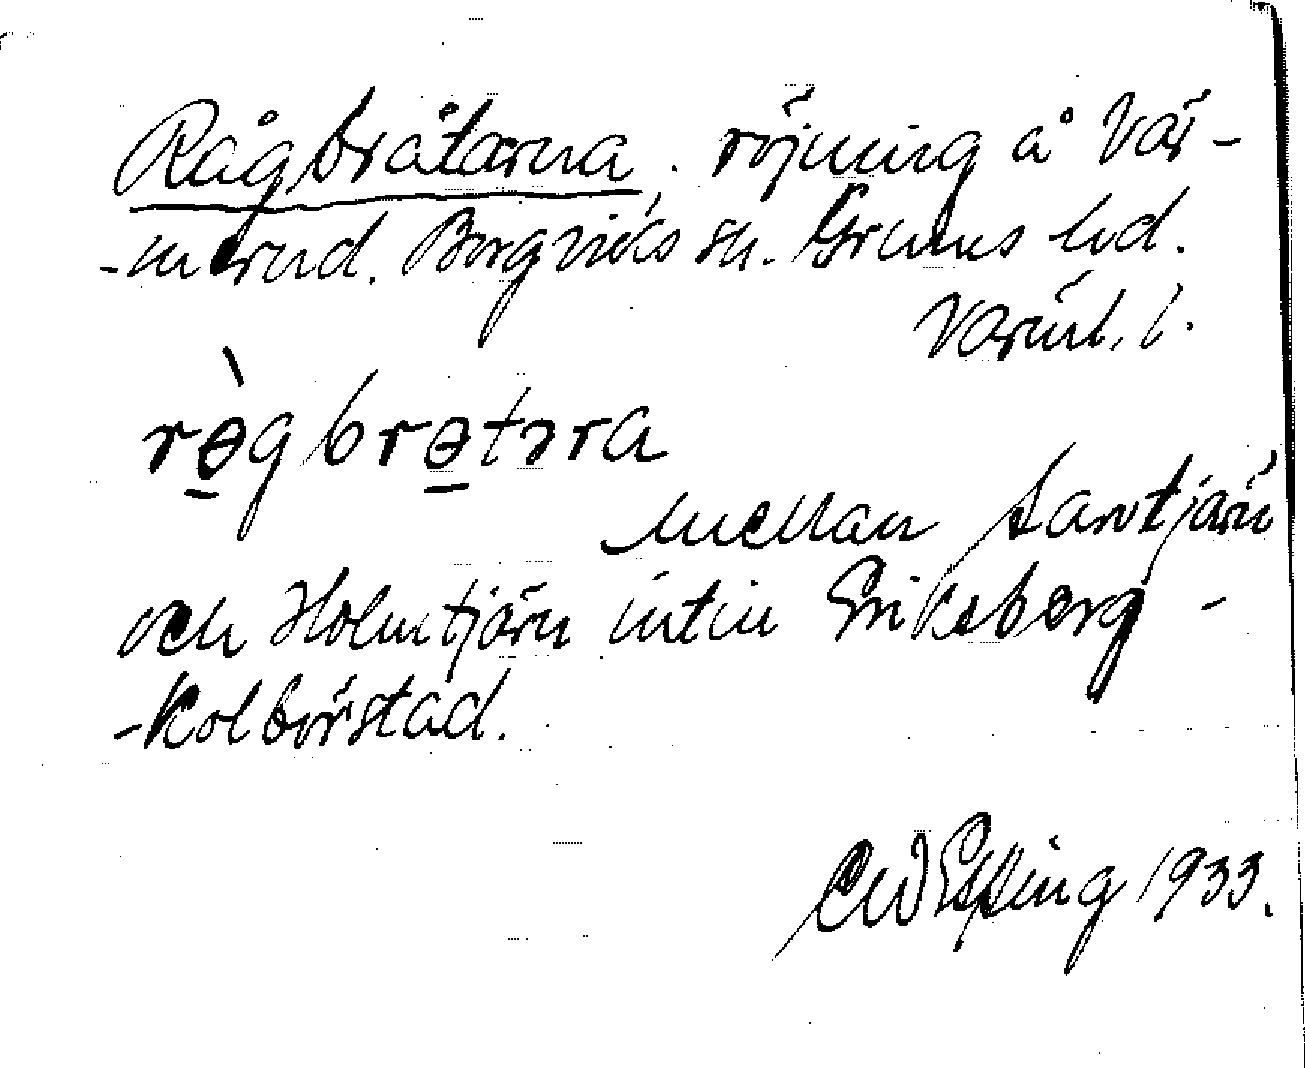 Rågbråtarna, röjning å Vär-
-merud. Borgviks sn. Grums hd.
Värml. l.
rògbrɵtɘra
mellan Savtjärn
och Holmtjärn intill Eriksberg -
-Kolbörstad.
CW Epping 1933.